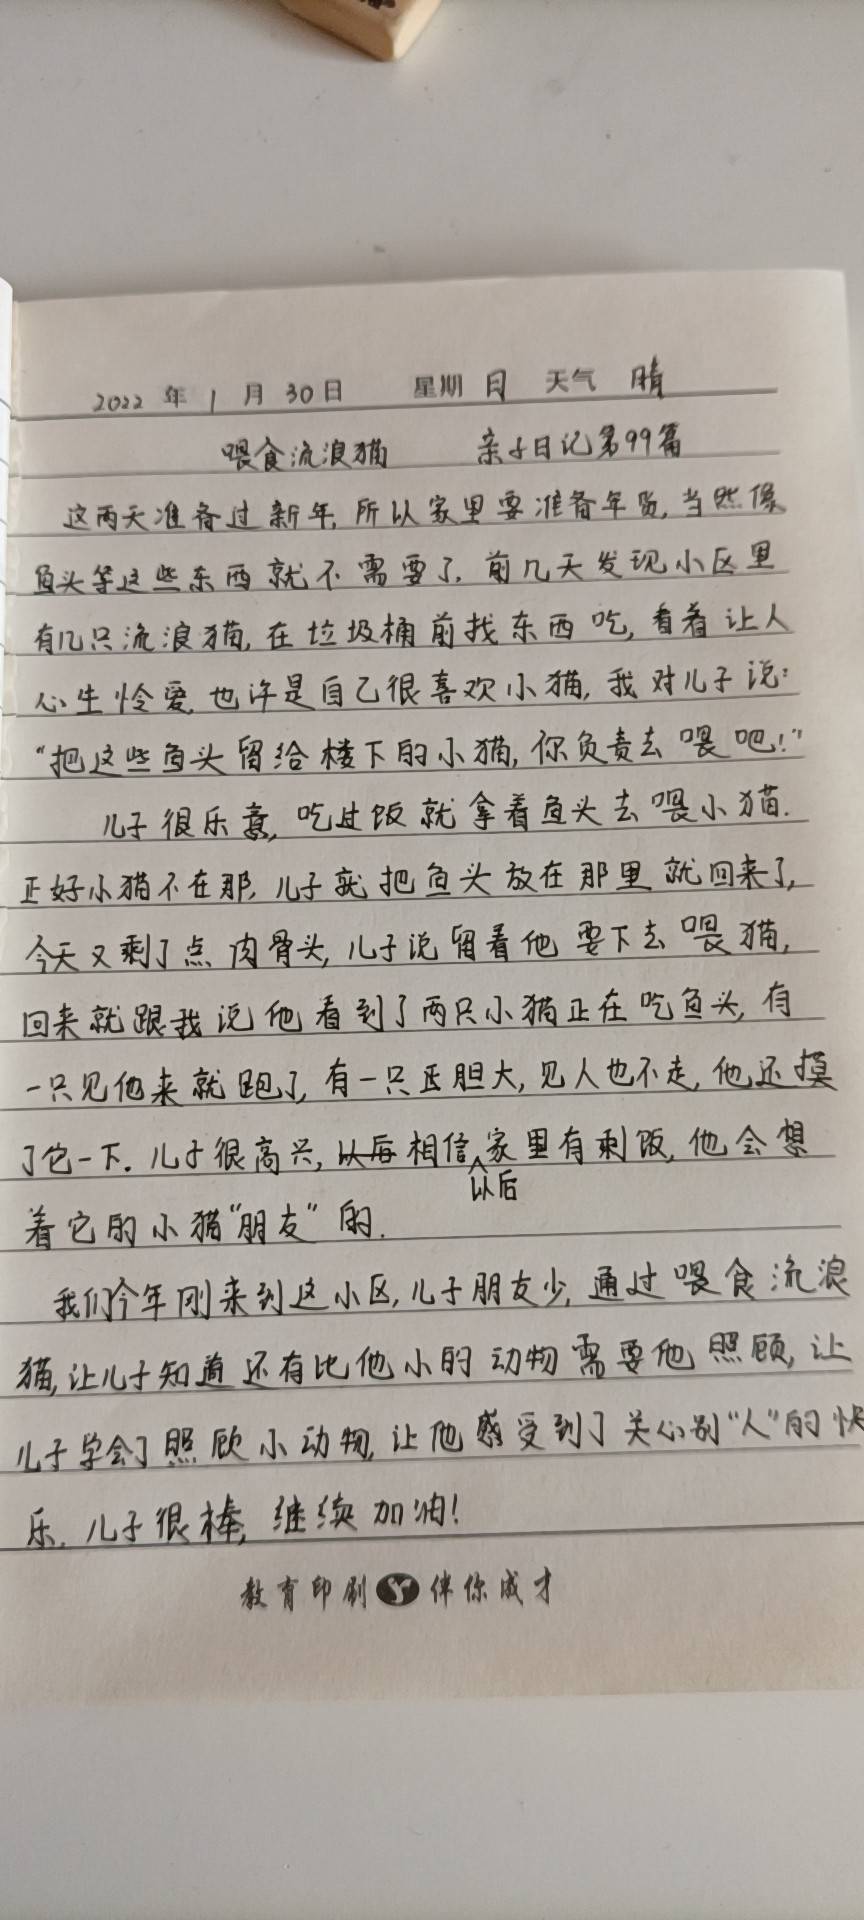 2022 年 1 月 30 日 星期 日 天气 晴
喂食流浪猫 亲子日记第99篇
这两天准备过新年,所以家里要准备年货,当然像
鱼头等这些东西就不需要了.前几天发现小区里
有几只流浪猫,在垃圾桶前找东西吃,看着让人
心生怜爱,也许是自己很喜欢小猫,我对儿子说:
“把这些鱼头留给楼下的小猫,你负责去喂吧!”
儿子很乐意,吃过饭就拿着鱼头去喂小猫.
正好小猫不在那,儿子就把鱼头放在那里就回来了,
今天又剩了点肉骨头,儿子说留着他要下去喂猫,
回来就跟我说他看到了两只小猫正在吃鱼头,有
一只见他来就跑了,有一只正胆大,见人也不走,他还摸
了它一下.儿子很高兴,以后相信以后家里有剩饭,他会想
着它的小猫“朋友”的.
我们今年刚来到这小区,儿子朋友少,通过喂食流浪
猫,让儿子知道还有比他小的动物需要他照顾,让
儿子学会了照顾小动物,让他感受到了关心别“人”的快
乐.儿子很棒,继续加油!
教育印刷 伴你成才